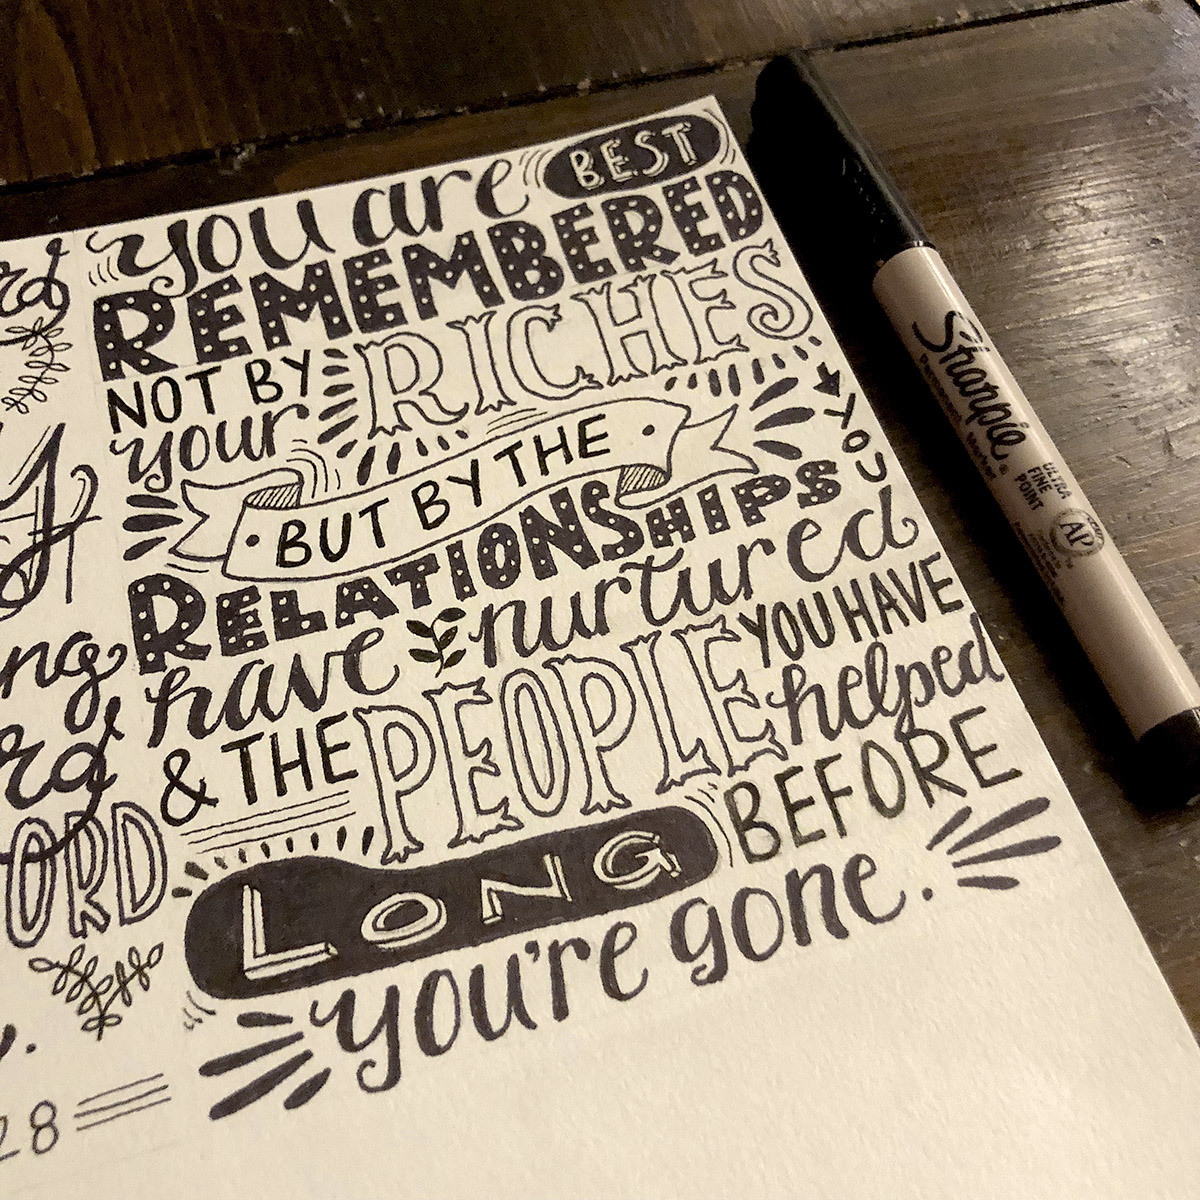 you are BEST
REMEMBERED
NOT BY RICHES
your
BUT BY THE
RELATIONSHIPS YOU
have nurtured
& THE PEOPLE YOU HAVE
helped
LONG BEFORE
you're gone.
ORD
28
Sharpie
Permanent Marker
ULTRA
FINE
POINT
AP